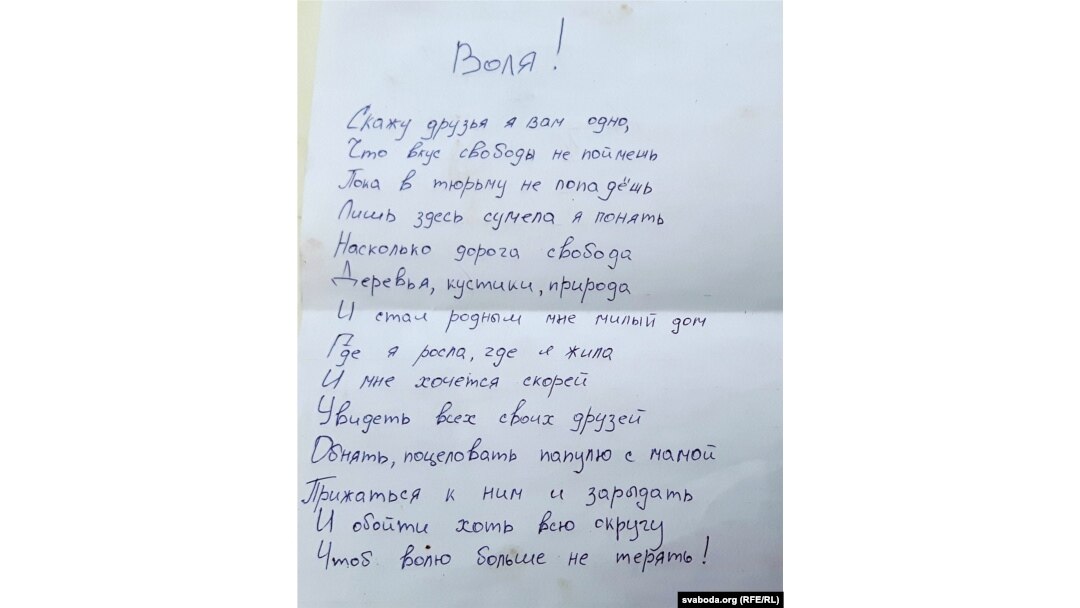 Воля!
Скажу друзья я вам одно,
Что вкус свободы не поймешь
Пока в тюрьму не попадёшь
Лишь здесь сумела я понять
Насколько дорога свобода
Деревья, кустики, природа
И стал родным мне милый дом
Где я росла, где я жила
И мне хочется скорей
Увидеть всех своих друзей
Обнять, поцеловать папулю с мамой
Прижаться к ним и зарыдать
И обойти хоть всю округу
Чтоб волю больше не терять!
svaboda.org (RFE/RL)